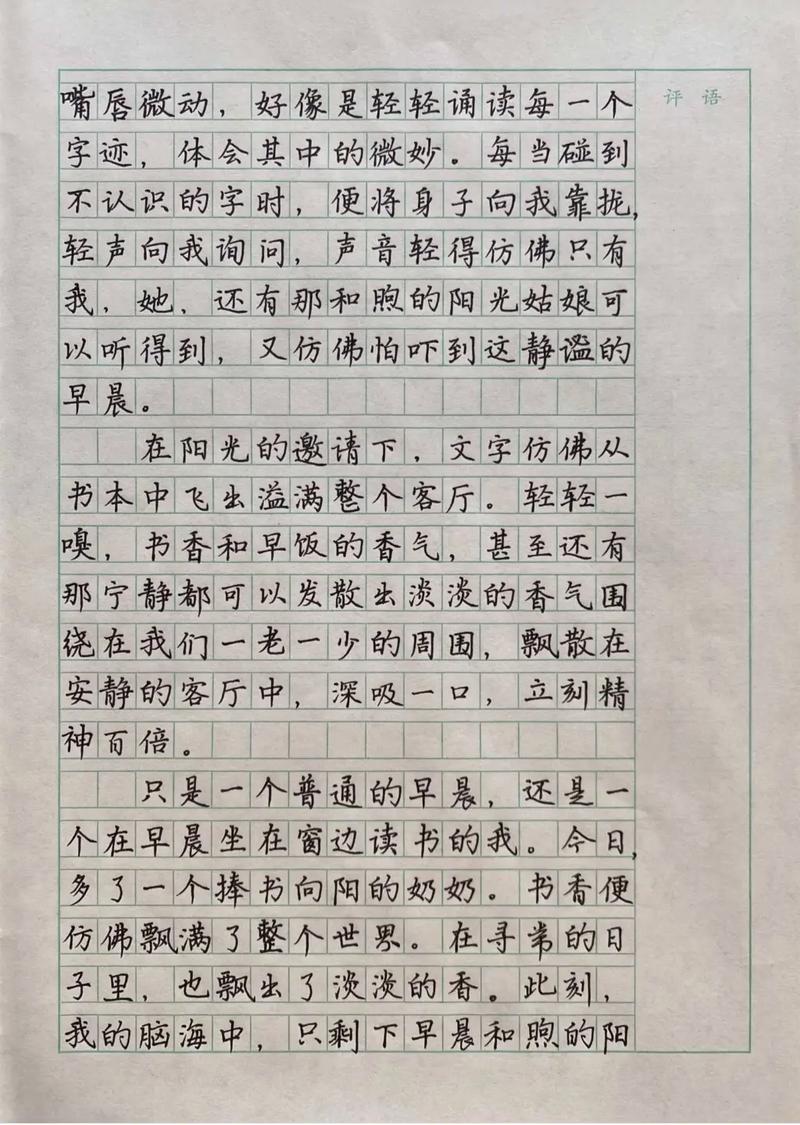 嘴唇微动，好像是轻轻诵读每一个
评语
字迹，体会其中的微妙。每当碰到
不认识的字时，便将身子向我靠拢，
轻声向我询问，声音轻得仿佛只有
我，她，还有那和煦的阳光姑娘可
以听得到，又仿佛怕吓到这静谧的
早晨。
在阳光的邀请下，文字仿佛从
书本中飞出溢满整个客厅。轻轻一
嗅，书香和早饭的香气，甚至还有
那宁静都可以发散出淡淡的香气围
绕在我们一老一少的周围，飘散在
安静的客厅中，深吸一口，立刻精
神百倍。
只是一个普通的早晨，还是一
个在早晨坐在窗边读书的我。今日，
多了一个捧书向阳的奶奶。书香便
仿佛飘满了整个世界。在寻常的日
子里，也飘出了淡淡的香。此刻，
我的脑海中，只剩下早晨和煦的阳